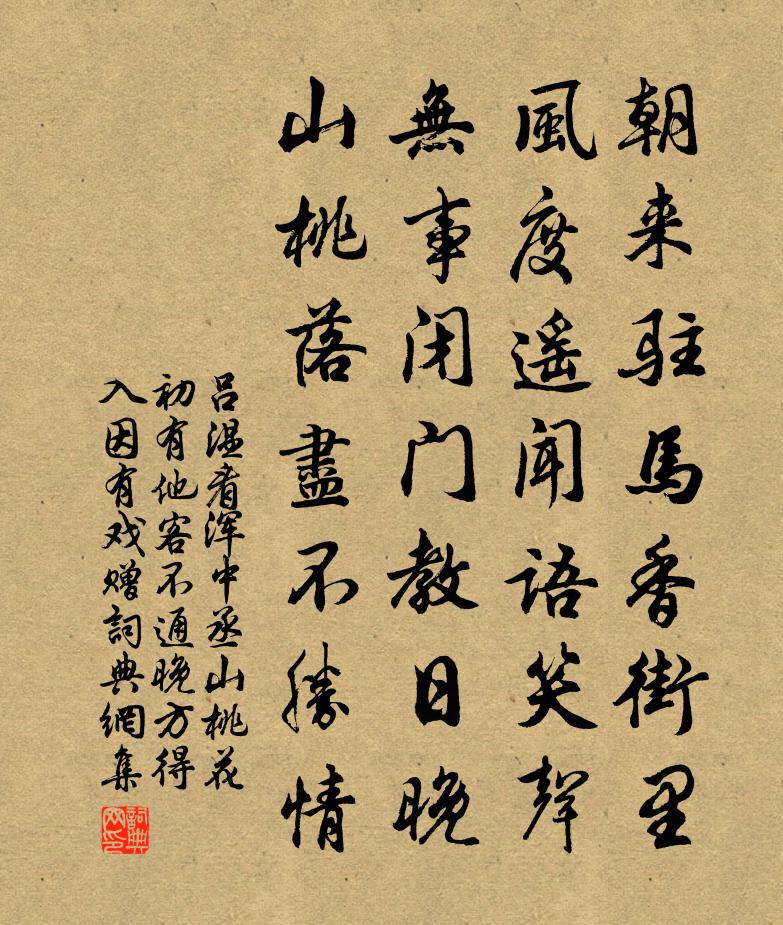 朝来駐馬香街里
風度遥闻語笑聲
無事闭门教日晚
山桃落盡不勝情
吕温看浑中丞山桃花
初有他客不通晚方得
入因有戏赠詞典網集
詞典网印